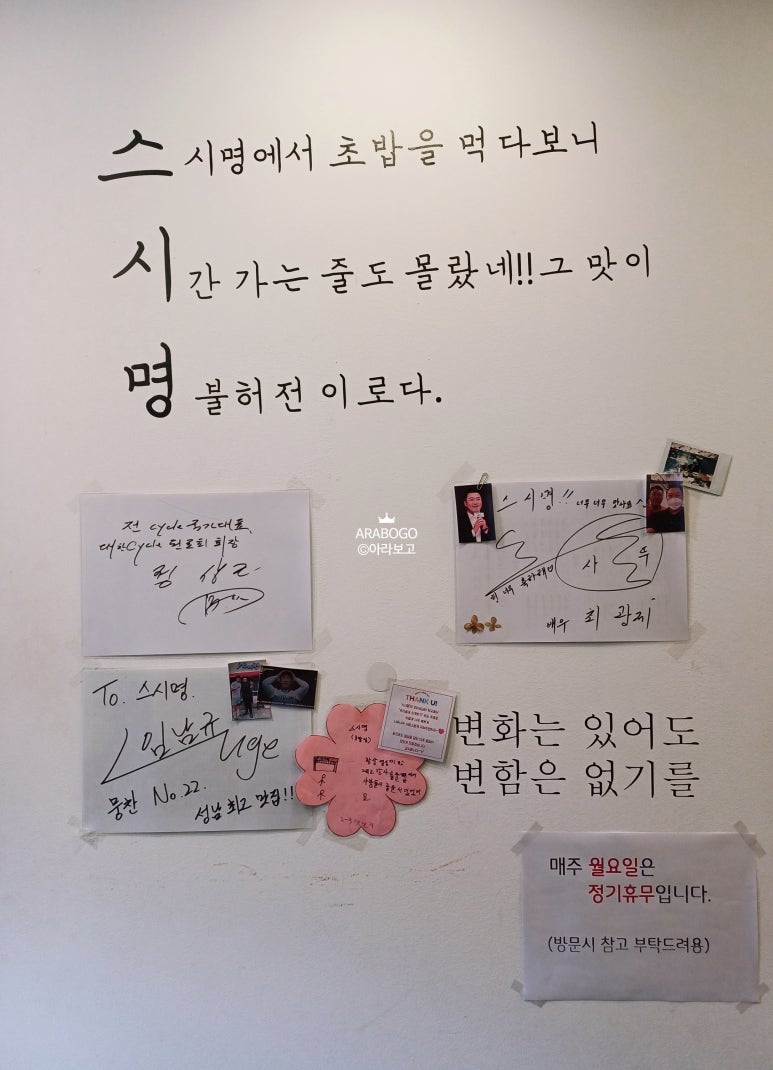 스시명에서 초밥을 먹다보니
시간 가는 줄도 몰랐네!!그 맛이
명불허전 이로다.
전 cycle 국가대표
대한cycle 원로회 회장
ARABOGO
©아라보고
스시명!! 너무너무 맛나요
배우 최광제
To. 스시명.
임남규 Luge
뭉찬 No.22.
성남 최고 맛집!!
스시명
THANK U!
변화는 있어도
변함은 없기를
매주 월요일은
정기휴무입니다.
(방문시 참고 부탁드려용)